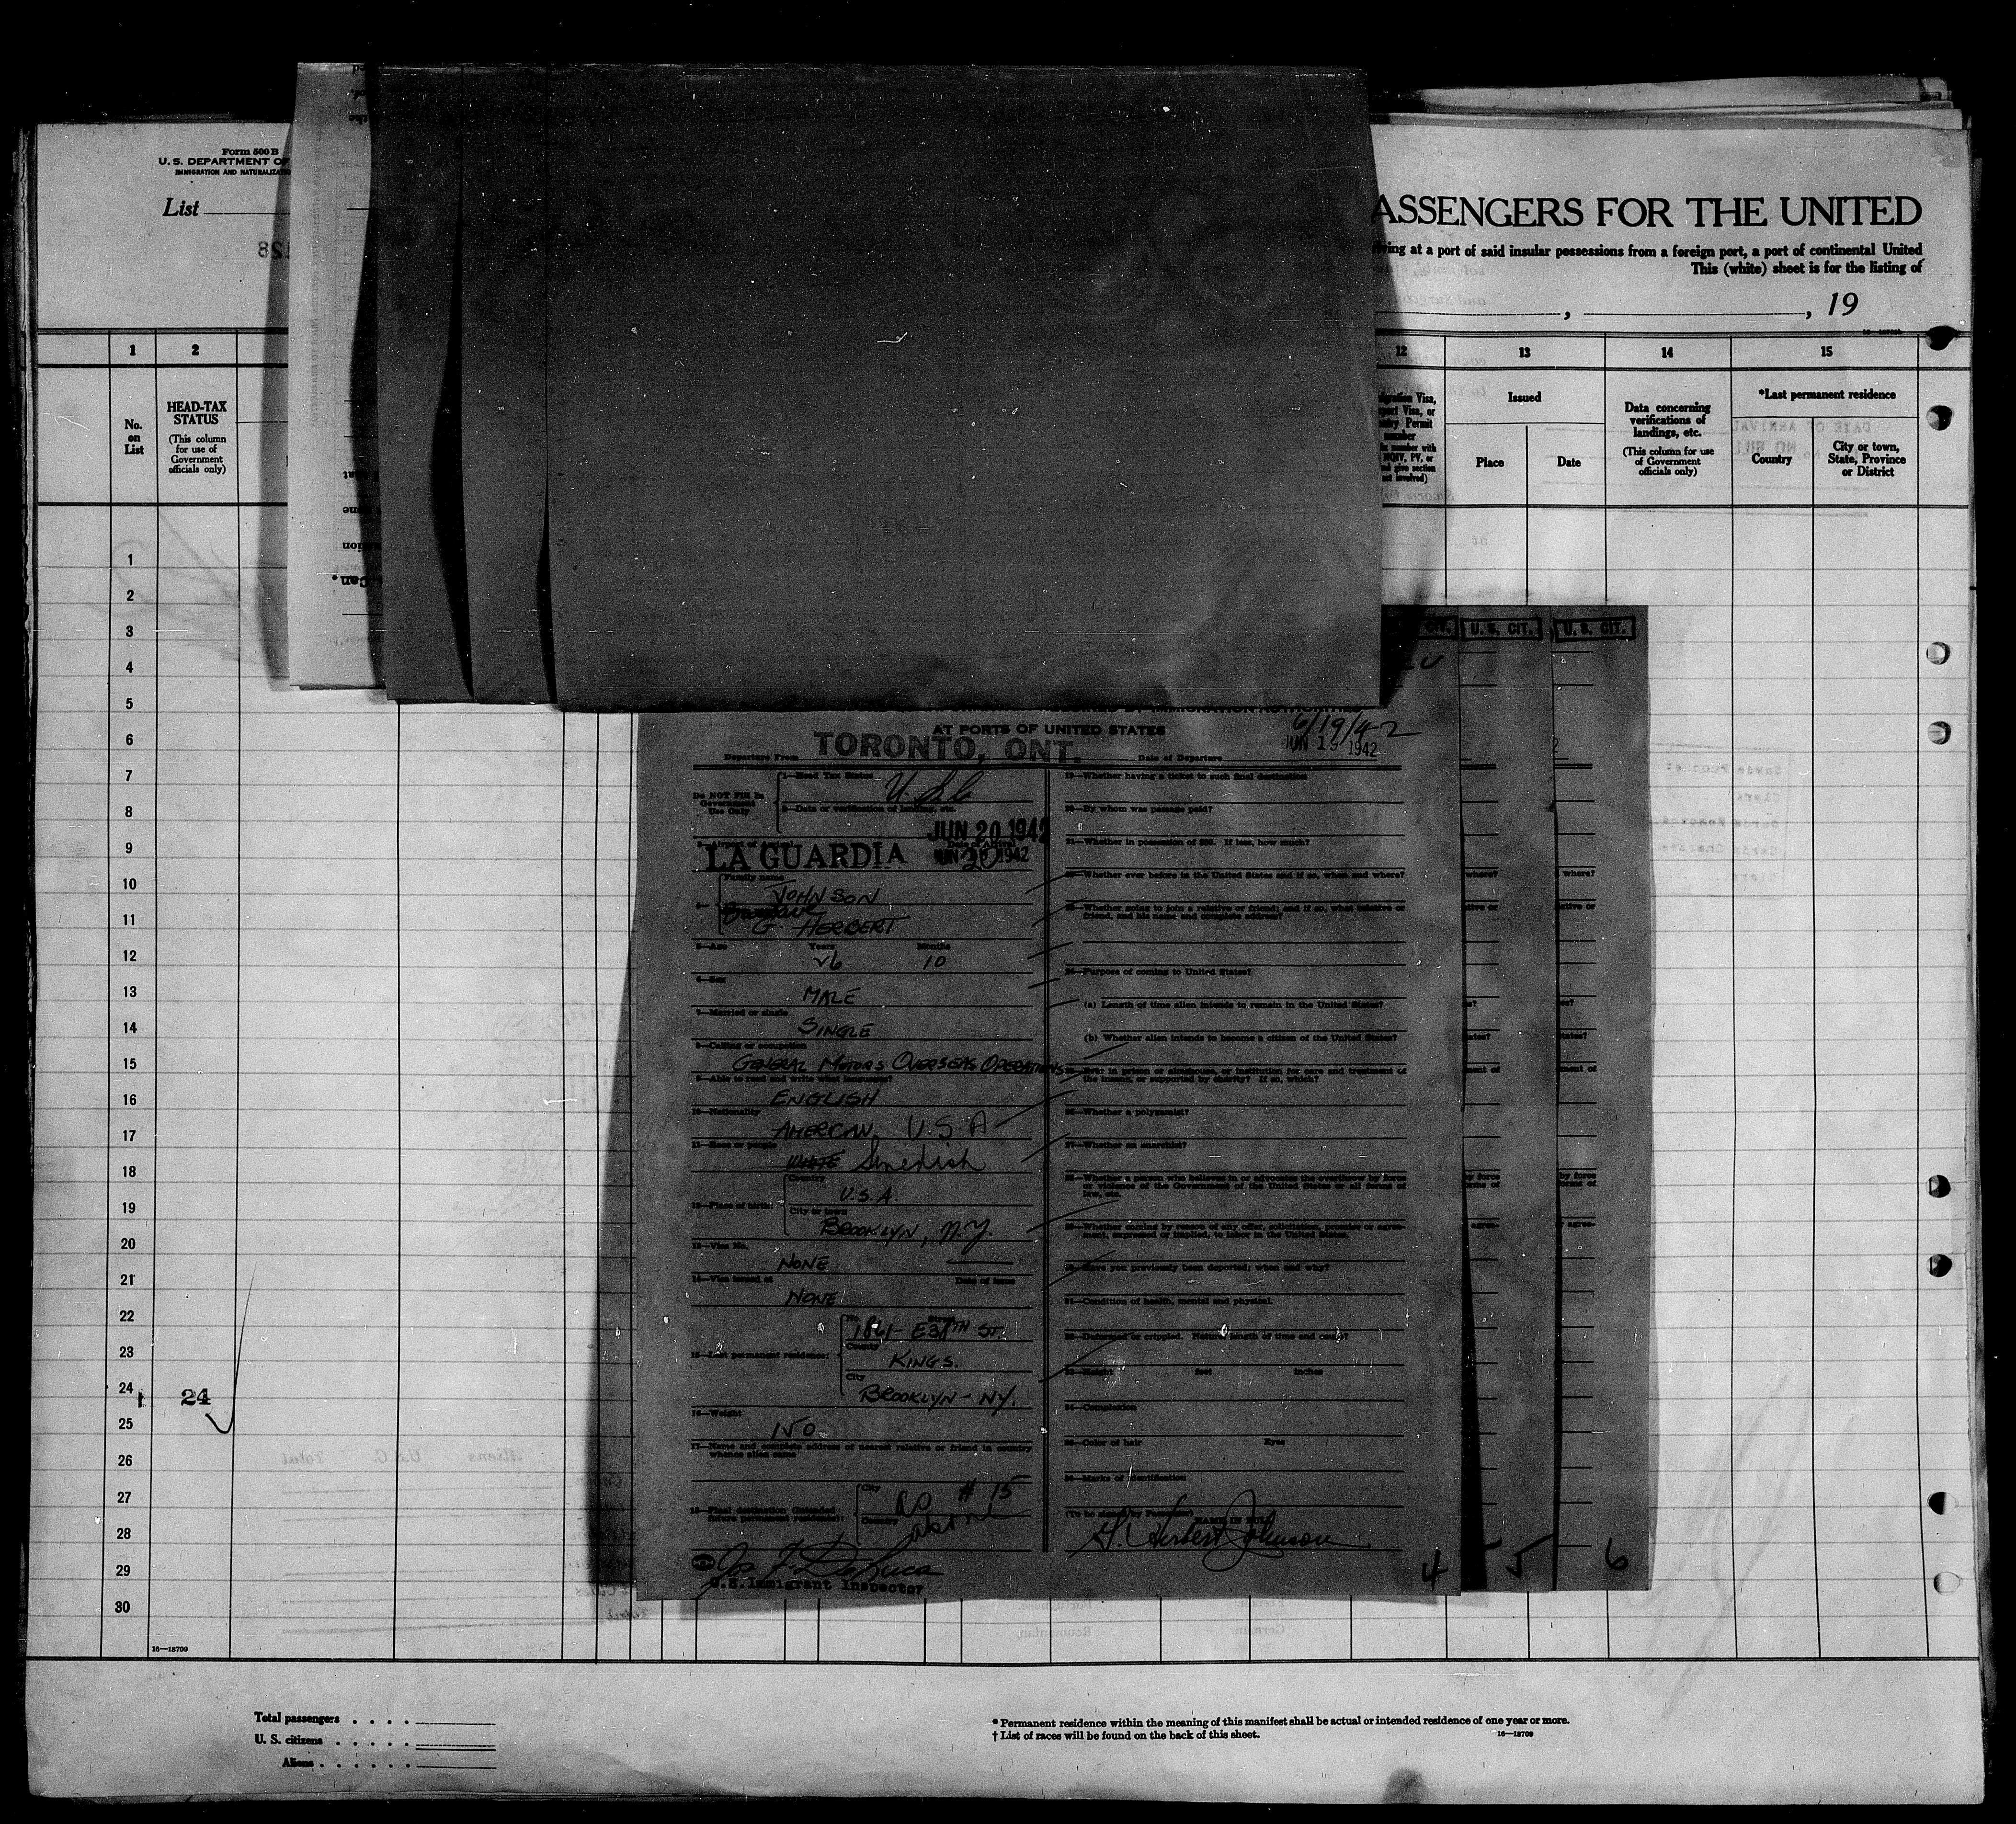 Form 500 B
U. S. DEPARTMENT OF
IMMIGRATION AND NATURALIZA
List
ASSENGERS FOR THE UNITED
iving at a port of said insular possessions from a foreign port, a port of continental United
This (white) sheet is for the listing of
, , 19
1 2 12 13 14 15
No. on List
HEAD-TAX STATUS
(This column for use of Government officials only)
Issued
Place Date
Data concerning verifications of landings, etc.
(This column for use of Government officials only)
*Last permanent residence
Country
City or town, State, Province or District
1
2
3
4
5
6
7
8
9
10
11
12
13
14
15
16
17
18
19
20
21
22
23
24
24
25
26
27
28
29
30
16—18709
U. S. CIT. U. S. CIT.
AT PORTS OF UNITED STATES
6/19/42
Departure From TORONTO, ONT. Date of Departure JUN 19 1942
Do NOT Fill In Government Use Only
1—Head Tax Status
2—Date or verification of landing, etc.
JUN 20 1942
LA GUARDIA
Family name
JOHNSON
G. HERBERT
5—Age Years Months
26 10
6—Sex
MALE
7—Married or single
SINGLE
8—Calling or occupation
GENERAL MOTORS OVERSEAS OPERATIONS
9—Able to read and write what languages?
ENGLISH
10—Nationality
AMERICAN U.S.A
11—Race or people
WHITE Swedish
12—Place of birth:
Country
U.S.A.
City or town
BROOKLYN, N.Y.
13—Visa No.
NONE
14—Visa issued at Date of Issue
NONE
15—Last permanent residence:
E 38TH ST.
County
KINGS.
City
BROOKLYN - NY.
16—Weight
150
17—Name and complete address of nearest relative or friend in country whence alien came
18—Final destination (Intended future permanent residence):
City
Country
as # 15
above
U.S. Immigrant Inspector
19—Whether having a ticket to such final destination
20—By whom was passage paid?
21—Whether in possession of $50. If less, how much?
22—Whether ever before in the United States and if so, when and where?
23—Whether going to join a relative or friend; and if so, what relative or friend, and his name and complete address?
24—Purpose of coming to United States?
(a) Length of time alien intends to remain in the United States?
(b) Whether alien intends to become a citizen of the United States?
25—Ever in prison or almshouse, or institution for care and treatment of the insane, or supported by charity? If so, which?
26—Whether a polygamist?
27—Whether an anarchist?
28—Whether a person who believes in or advocates the overthrow by force or violence of the Government of the United States or all forms of law, etc.
29—Whether coming by reason of any offer, solicitation, promise or agreement, expressed or implied, to labor in the United States.
30—Have you previously been deported; when and why?
31—Condition of health, mental and physical.
32—Deformed or crippled. Nature, length of time and cause?
33—Height feet inches
34—Complexion
35—Color of hair Eyes
36—Marks of identification
(To be signed by Passenger) NAME IN FULL
G. Herbert Johnson
4 5 6
Total passengers
U. S. citizens
Aliens
* Permanent residence within the meaning of this manifest shall be actual or intended residence of one year or more.
† List of races will be found on the back of this sheet.
16—18709